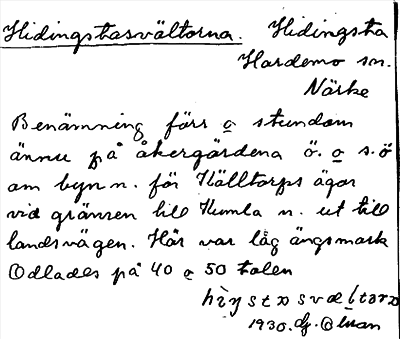 Hidingstasvältorna. Hidingsta
Hardemo sn.
Närke
Benämning förr o stundom
ännu på åkergärdena ö. o s.ö
om byn n. för Hälltorps ägor
vid gränsen till Kumla n. ut till
landsvägen. Här var låg ängsmark
Odlades på 40 o 50 talen
1930.